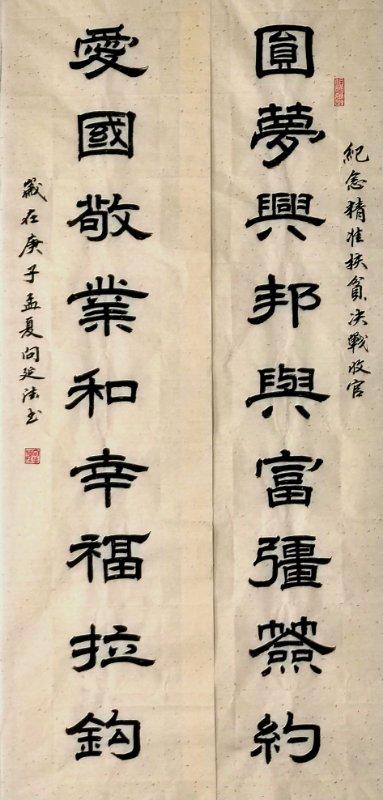 紀念精准扶貧决戰收官
圓夢興邦與富彊簽約
愛國敬業和幸福拉鈎
歲在庚子孟夏向延法书